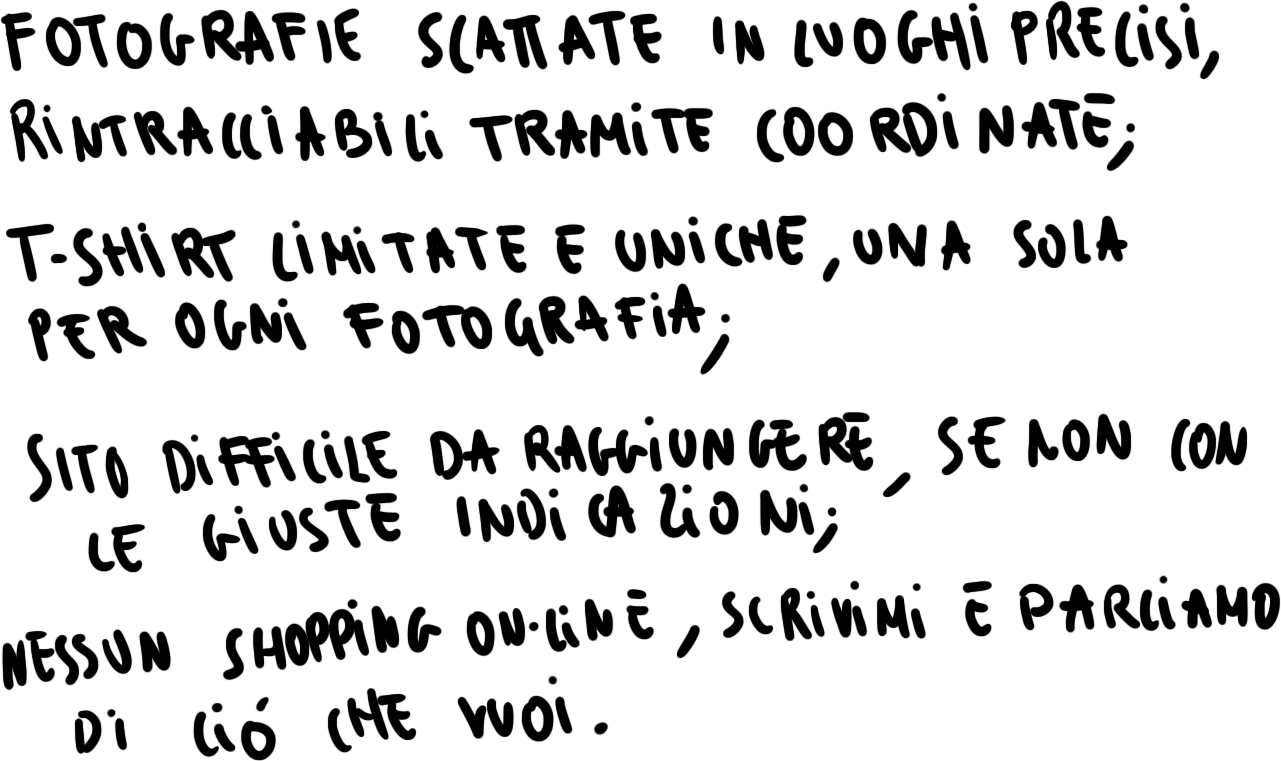 FOTOGRAFIE SCATTATE IN LUOGHI PRECISI,
RINTRACCIABILI TRAMITE COORDINATE;
T-SHIRT LIMITATE E UNICHE, UNA SOLA
PER OGNI FOTOGRAFIA;
SITO DIFFICILE DA RAGGIUNGERE, SE NON CON
LE GIUSTE INDICAZIONI;
NESSUN SHOPPING ON-LINE, SCRIVIMI E PARLIAMO
DI CIÓ CHE VUOI.